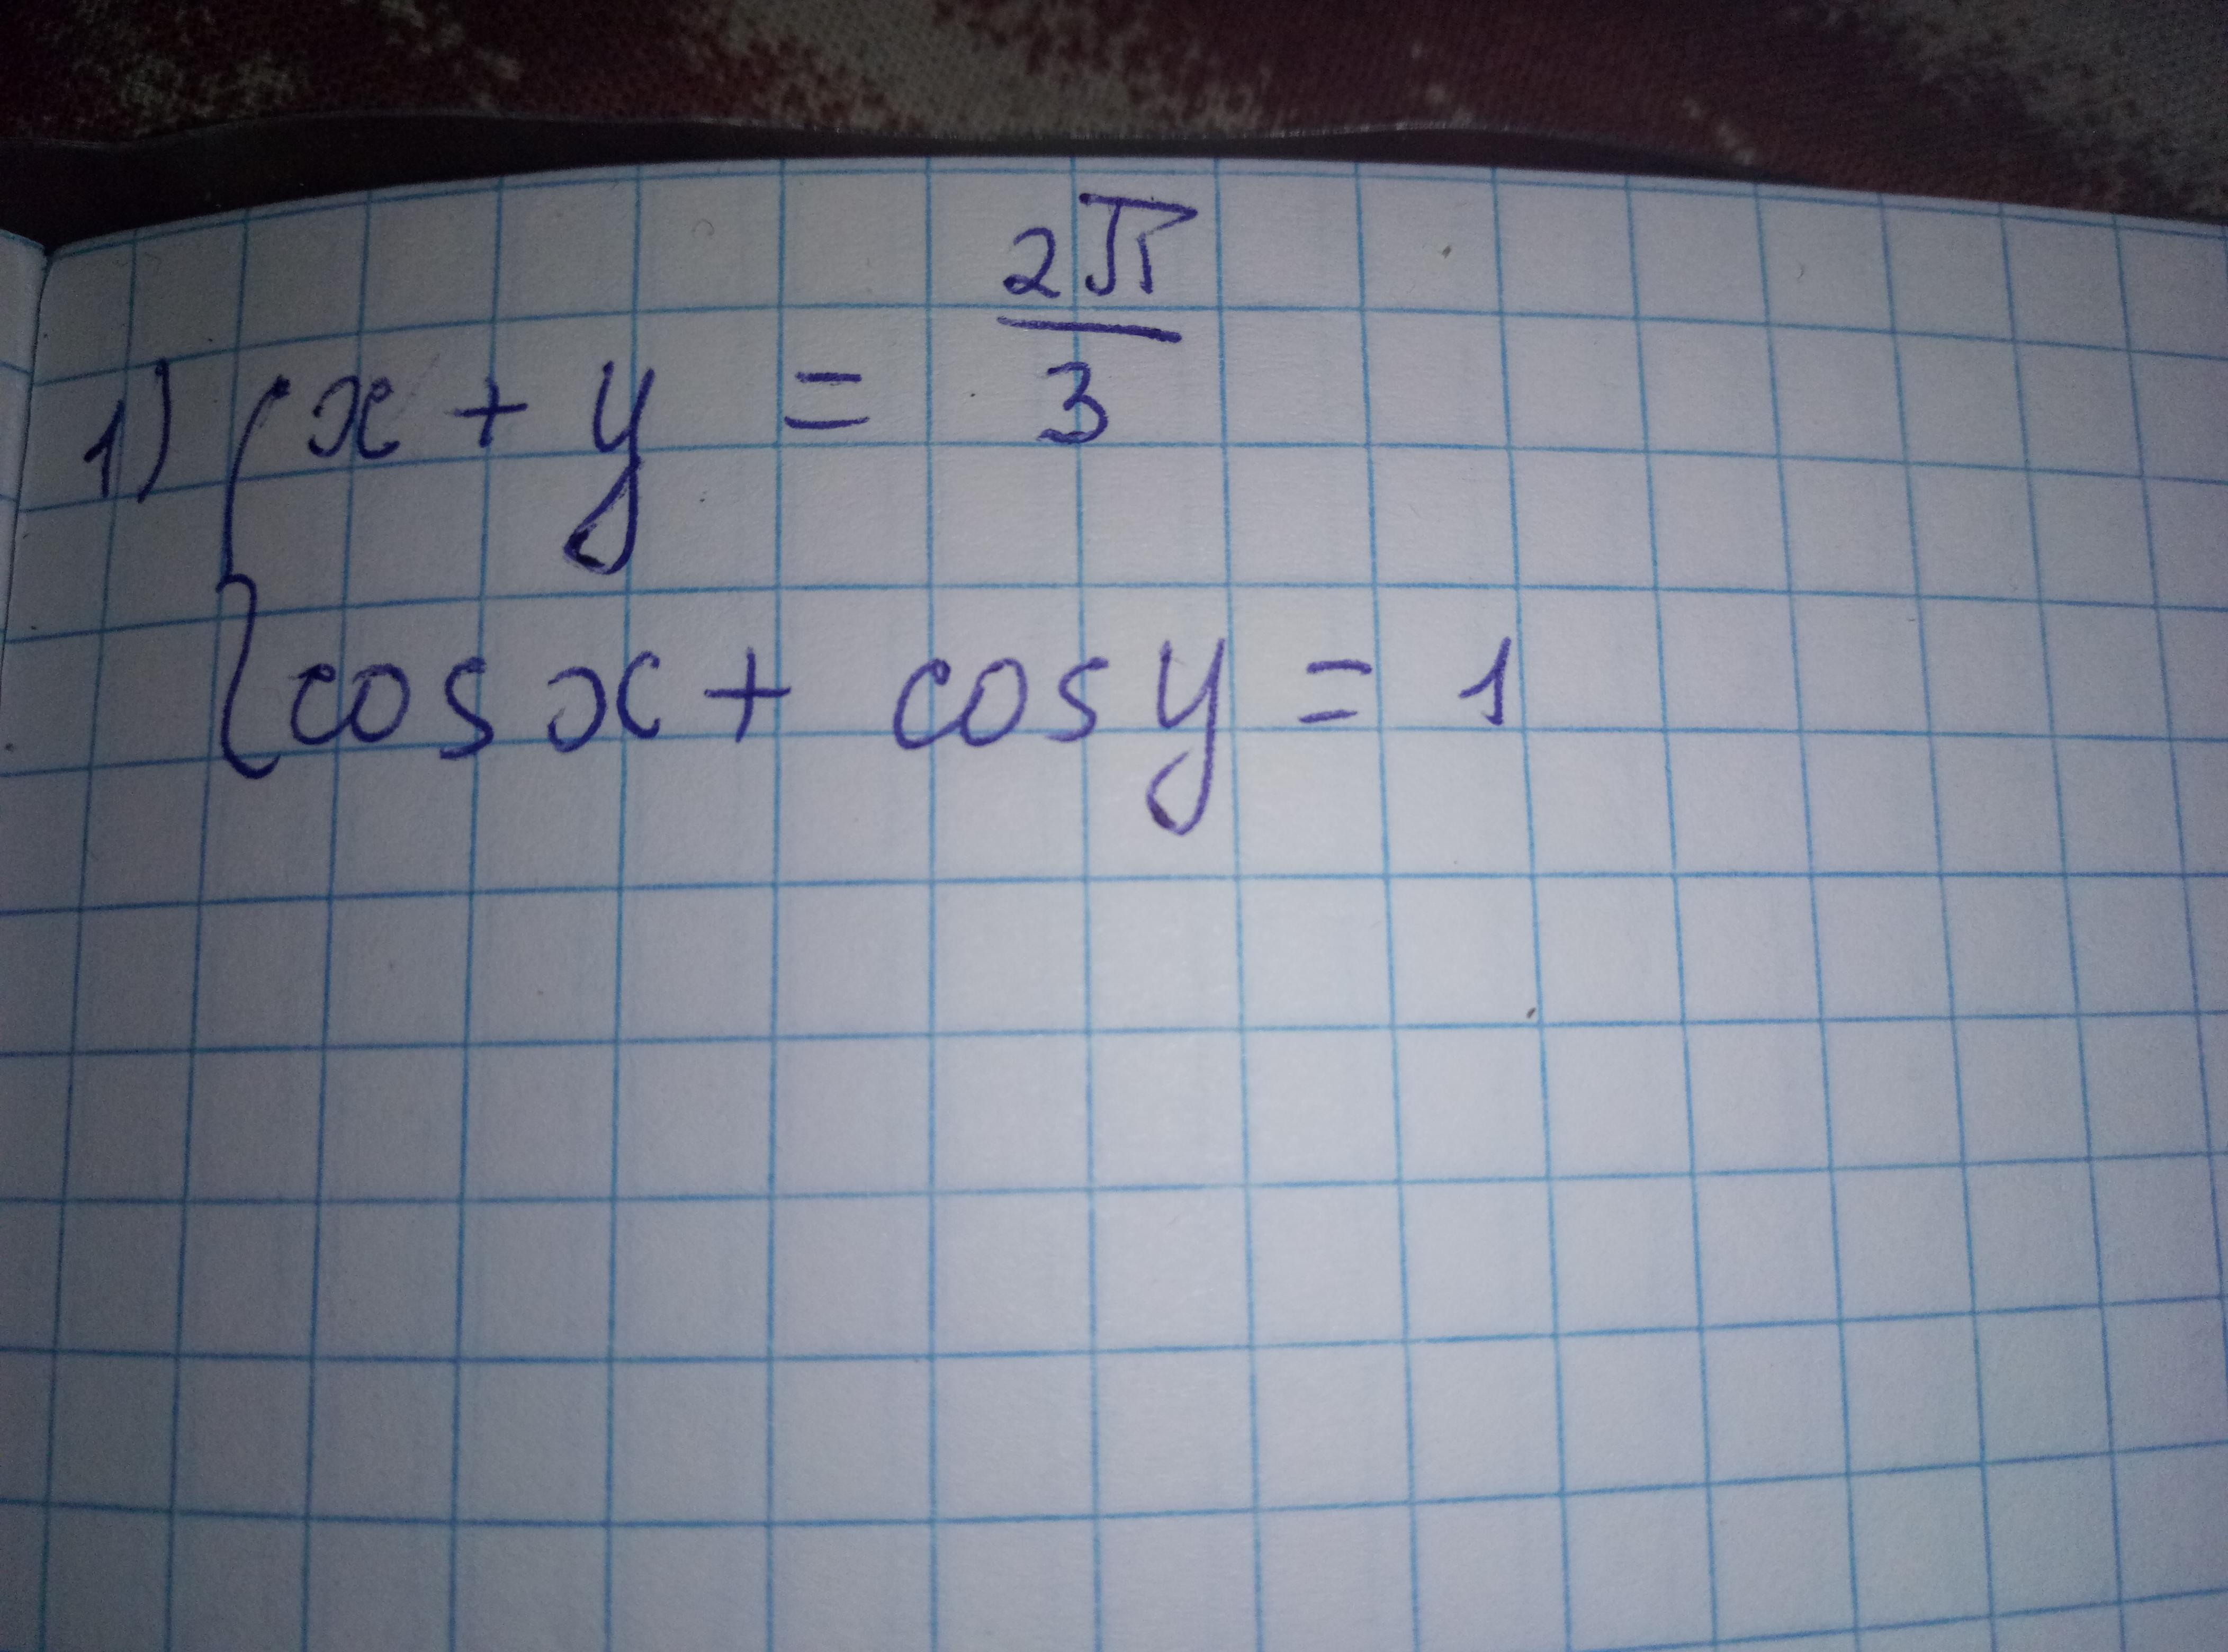 1) { x + y = 2π/3
cos x + cos y = 1